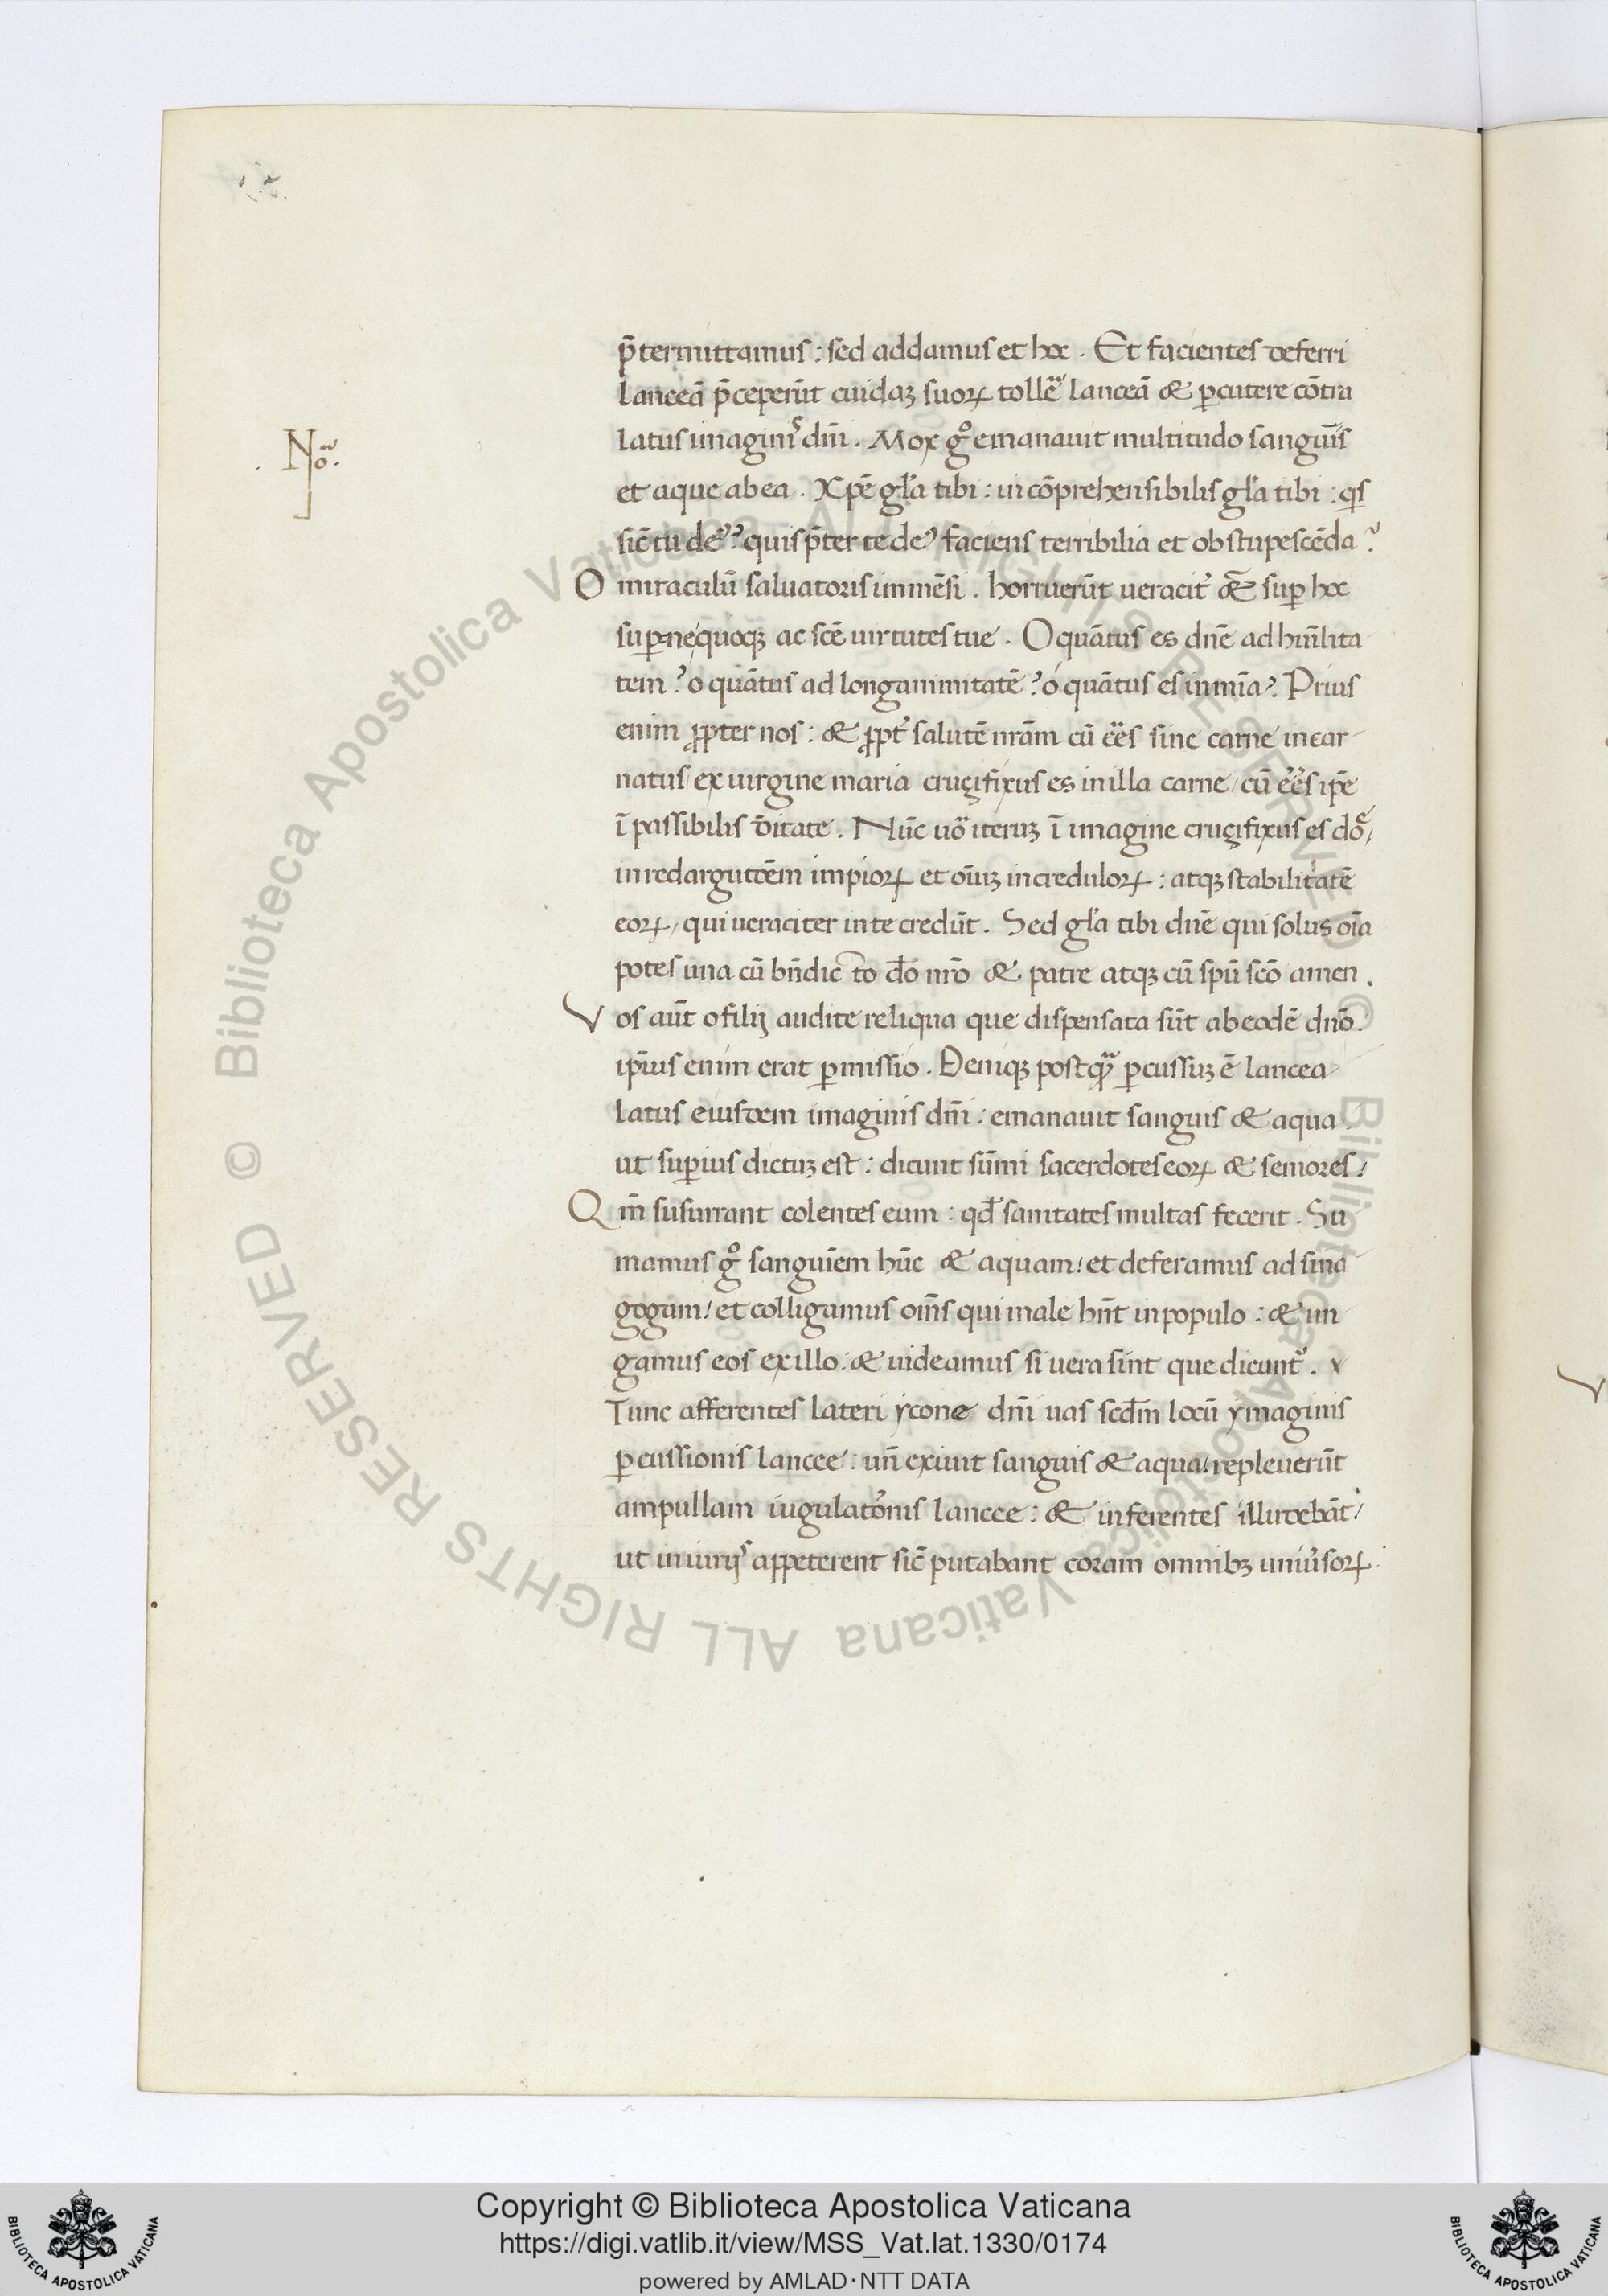 p̄termittamus : sed addamus et hoc . Et facientes deferri
lanceā p̄ceperūt cuidaꝫ suoꝝ tollē lanceā & ꝑcutere cōtra
latus imaginis dn̄i . Mox gͦ emanauit multitudo sanguīs
No.
et aque ab ea . Xpē gl̄a tibi : incōprehensibilis gl̄a tibi : qs
sic̄ tu deꝰ? quis p̄ter te deꝰ faciens terribilia et obstupescēda?
O miraculū saluatoris inmēsi . horruerūt ueracit̓ & sup̱ hoc
sup̱neq̨uoqꝫ ac scē uirtutes tue . O quātus es dn̄e ad hūilita
tem? o quātus ad longanimitatē? o quātus es in mīa? Prius
enim ꝓpter nos : & ꝓpt̓ salutē nr̄am cū eēs sine carne incar
natus ex uirgine maria crucifixus es in illa carne / cū eēs ip̄e
ī passibilis d̄itate . Nūc uo iteruꝫ ī imagine crucifixus es do/
in redargutōem impioꝝ et oīuꝫ increduloꝝ : atqꝫ stabilitatē
eoꝝ / qui ueraciter in te credūt . Sed gl̄a tibi dn̄e qui solus oīa
potes una cū bn̄dicto dō nr̄o & patre atqꝫ cū spū scō amen .
Vos aūt o filij audite reliqua que dispensata sūt ab eodē dn̄o .
ip̄ius enim erat ꝑmissio . Deniqꝫ postq̄ ꝑcussuꝫ ē lancea
latus eiusdem imaginis dn̄i : emanauit sanguis & aqua
ut sup̱ius dictuꝫ est : dicunt sūmi sacerdotes eoꝝ & seniores /
Qm̄ susurrant colentes eum : qd̄ sanitates multas fecerit . Su
mamus gͦ sanguīem hūc & aquam / et deferamus ad sina
gogam / et colligamus om̄s qui male hn̄t in populo : & un
gamus eos ex illo : & uideamus si uera sint que dicunt̓ .
Tunc afferentes lateri ycone dn̄i uas scd̄m locū ymaginis
ꝑcussionis lancee : un̄ exiuit sanguis & aqua / repleuerūt
ampullam iugulatōnis lancee : & inferentes illudebāt /
ut iniurijs appeterent sic̄ putabant coram omnibꝫ uniu̓soꝝ
© Biblioteca Apostolica Vaticana ALL RIGHTS RESERVED
© Biblioteca Apostolica Vaticana ALL RIGHTS RESERVED
BIBLIOTECA APOSTOLICA VATICANA
Copyright © Biblioteca Apostolica Vaticana
https://digi.vatlib.it/view/MSS_Vat.lat.1330/0174
powered by AMLAD·NTT DATA
BIBLIOTECA APOSTOLICA VATICANA